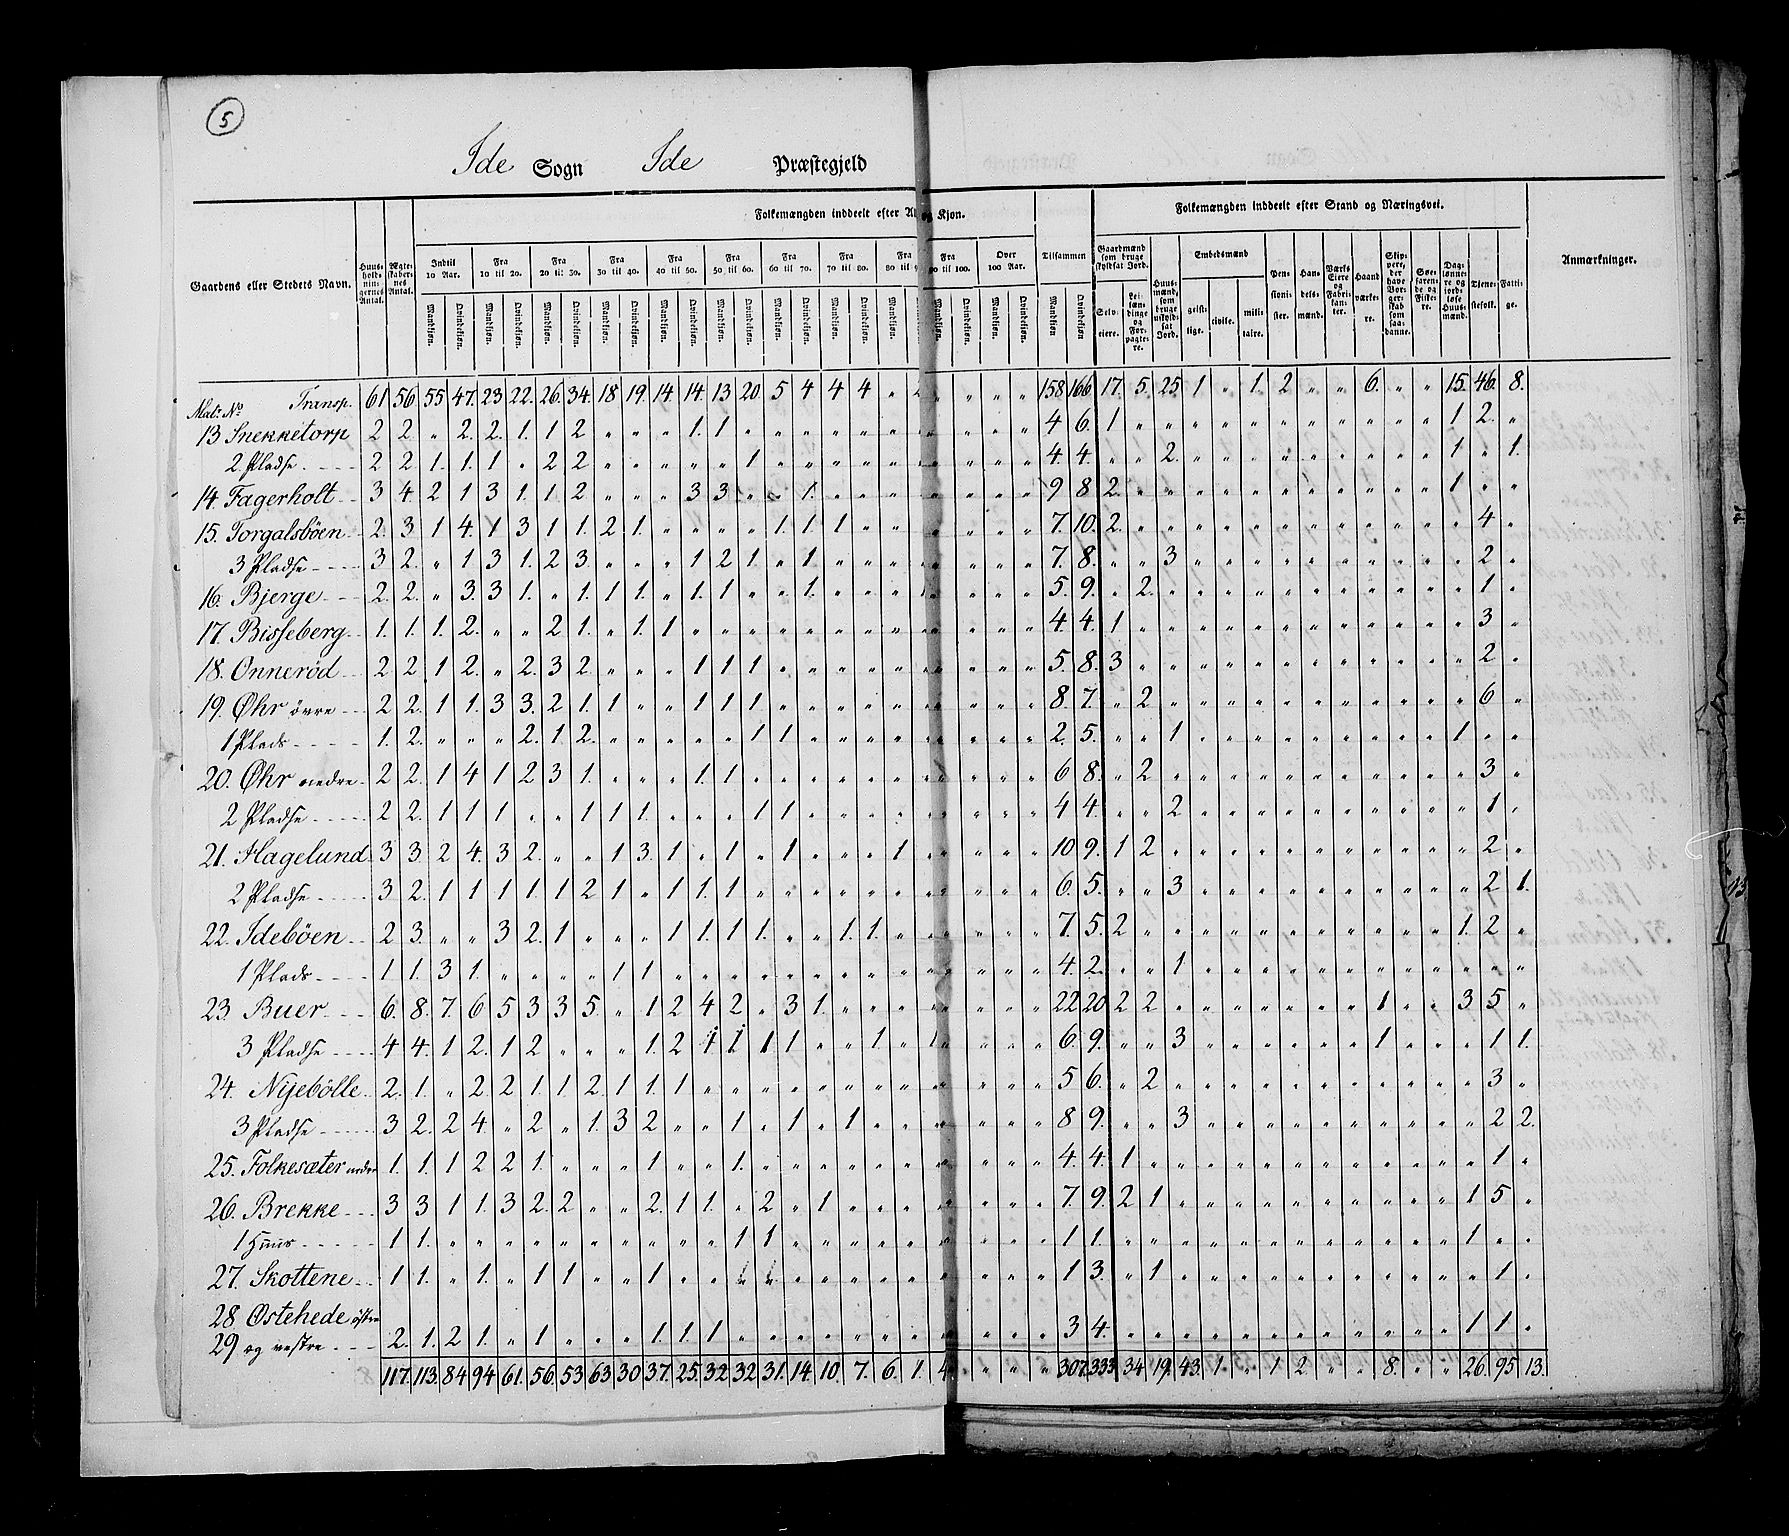 5
Ide Sogn Ide Præstegjeld
Gaardens eller Stedets Navn.
Huusholdningernes Antal.
Ægteskabernes Antal.
Folkemængden inddeelt efter Al og Kjøn.
Indtil 10 Aar.
Fra 10 til 20.
Fra 20 til 30.
Fra 30 til 40.
Fra 40 til 50.
Fra 50 til 60.
Fra 60 til 70.
Fra 70 til 80.
Fra 80 til 9
90 til 100.
Over 100 Aar.
Tilsammen
Mandkjøn. Qvindekjøn.
Folkemængden inddeelt efter Stand og Næringsvei.
Gaardmænd som bruge skyldsat Jord.
Selveiere.
Leilændinge og Forpagtere.
Huusmænd, som bruge uskyldsat Jord.
Embedsmænd
geistlige.
civile.
militaire.
Pensionister.
Handelsmænd.
Værks Eiere og Fabrikanter.
Haandværkere.
Skippere, der have Borgerskab som saadanne.
Søefarende og Fiskere.
Daglønnere og jordløse Huusmænd.
Tjenestefolk.
Fattige.
Anmærkninger.
Matr. No Transp. 61 56 55 47. 23 22. 26. 34. 18 19. 14 14. 13 20. 5 4 4 4 „ 158 166 17. 5. 25 1 „ 1. 2 „ „ 6. „ „ 15. 46. 8.
13 Snekketorp 2 2 „ 2. 2. 1. 1 2 „ „ „ 1. 1 „ 4 6. 1 „ 1 2. „
2 Pladse 2 2 1. 1. 1 „ 2 2 „ „ „ „ „ 1 „ 4. 4. „ „ 2. „ 1 „ 1.
14. Fagerholt 3 4 2 1 3 1. 1 2 „ „ „ 3 3 „ „ 1. „ 9 8 2. „ 1 „ „
15. Torgalsböen 2. 3 1 4. 1 3 1 1. 2 1. „ „ „ „ 1. 1. 1 „ 7. 10. 2. „ 4 „
3 Pladse 3 2. „ 1 3 1. 2 3. „ „ „ 1 2 1. „ 1 „ 7. 8. „ „ 3 „ 2 „
16. Bjerge 2. 2. „ 3. 3 1. „ 1. 1 1. „ 1. 1 „ „ 1. „ 5. 9. „ 2. „ 1 „
17. Bisseberg 1. 1. 1. 2. „ „ 2 1. „ 1. 1 „ 4. 4. 1 „ 3 „
18. Onneröd 2 2 1 2. „ 2. 3 2. „ „ „ 1 1 1 „ 5. 8. 3 „ 2 „
19. Øhr övre 2 2. 1 1. 3 3. 2 1. 1 „ „ 1 1 1. „ 8. 7. „ 2 „ 6 „
1 Plads 1. 2. „ „ „ 2. 1 2. „ „ „ „ „ 1 1 „ 2. 5. „ „ 1 „ 1 „ „
20. Øhr nedre 2 2. 1 4 1 2 3 1. „ „ „ 1. 1 „ 6 8. „ 2 „ 3 „
2 Pladse 2 2. 1 1 1 „ „ 1 1 1. „ „ „ 1 1 „ 4 4. „ „ 2 „ 1 „
21. Hagelund 3 3. 2 4. 3 2. „ „ 1 3. 1 „ 1 „ 1 „ „ „ 1 „ 10 9. 1 2 „ 2 „
2 Pladse 3 2. 1 1 1 1. 1 2 1 „ 1 1. 1 „ 6. 5. „ „ 3 „ 2 1.
22. Idebōen 2 3. „ „ 3 2. 1 „ „ „ 1 1. 1 1. „ „ 1. 1. „ 7. 5. 2 „ 1. 2 „
1 Plads 1 1. 3 1. „ „ „ „ 1 1 „ 4. 2. „ „ 1 „ „ „
23. Buer 6. 8. 7. 6 5 3 3 5. „ 1 2 4 2 „ 3 1. „ 22 20 2 2 „ 1 „ „ 3 5 „
3 Pladse 4 4. 1 2. 1 2 „ „ „ 1. 2 1 1 1. 1 „ „ 1. „ 1 „ 6. 9. „ „ 3 „ 1 „ „ „ 1 1.
24. Nyebölle 2. 1. „ 2 2 1 1 2. 1 1. 1 „ 5 6. „ 2 „ 3 „
3 Pladse 3 2. 2 4. „ 2 „ 1. 3 2 „ „ 1 „ 1 „ 1 „ 8 9. „ „ 3 „ 2 2.
25. Folkesæter nedre 1. 1. 1 2 2 1. „ „ „ 1 „ „ 1. „ 4. 4. 1 „ 1 „
26. Brekke 3 3 1 1. 3 2. 2 „ „ 2. 1 1. „ 2 „ 1 „ 7. 9. 2 1 „ 1 5 „
1 Huus 1 1. „ 1 1. „ 1 1. „ 1 „ „
27. Skottene 1 1. „ 1. „ 1 1 „ „ 1 „ 1 3. „ 1 „ 1 „
28 Østehede östre
29 og vestre 2. 1. 2 1. „ 1 „ „ „ 1. 1. 1 „ 3 4. „ 1 1 „
117. 113. 84 94 61. 56. 53 63. 30 37. 25. 32 32 31. 14 10. 7. 6. 1. 4. „ „ „ „ 307. 333 34 19. 43. 1. „ 1 2 „ „ 8. „ „ 26. 95 13.